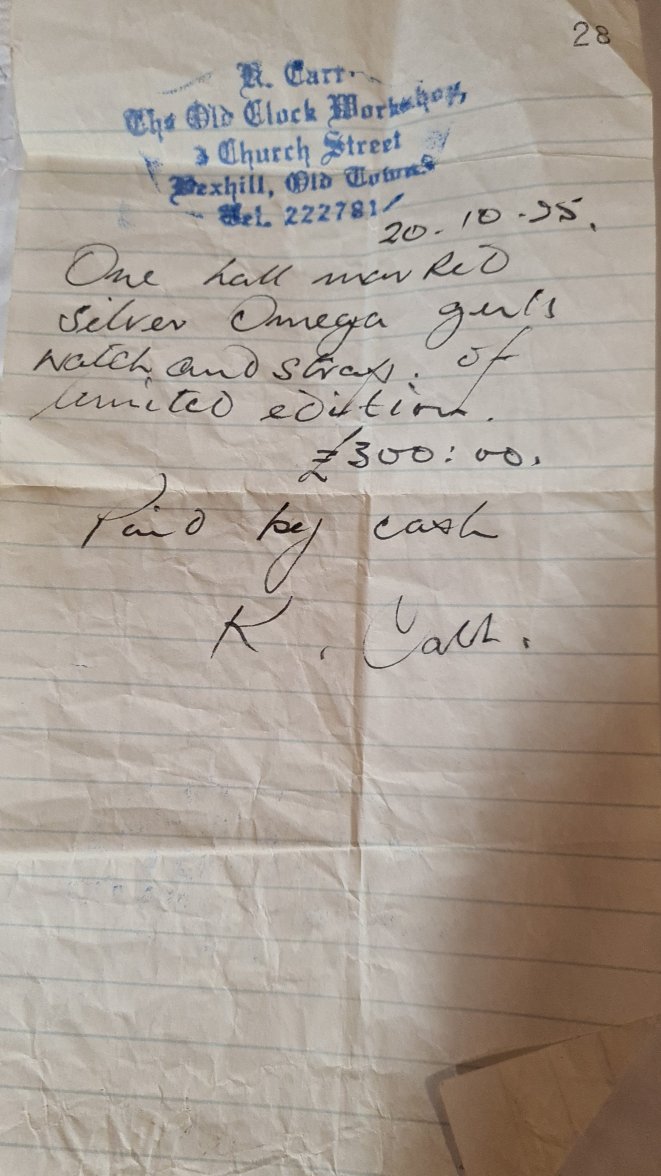 28
K. Carr.
The Old Clock Workshop,
3 Church Street
Bexhill, Old Town
Tel. 222781
20-10-95.
One hall marked
silver Omega gents
watch and strap. of
limited edition.
£300:00.
Paid by cash
K. Carr.